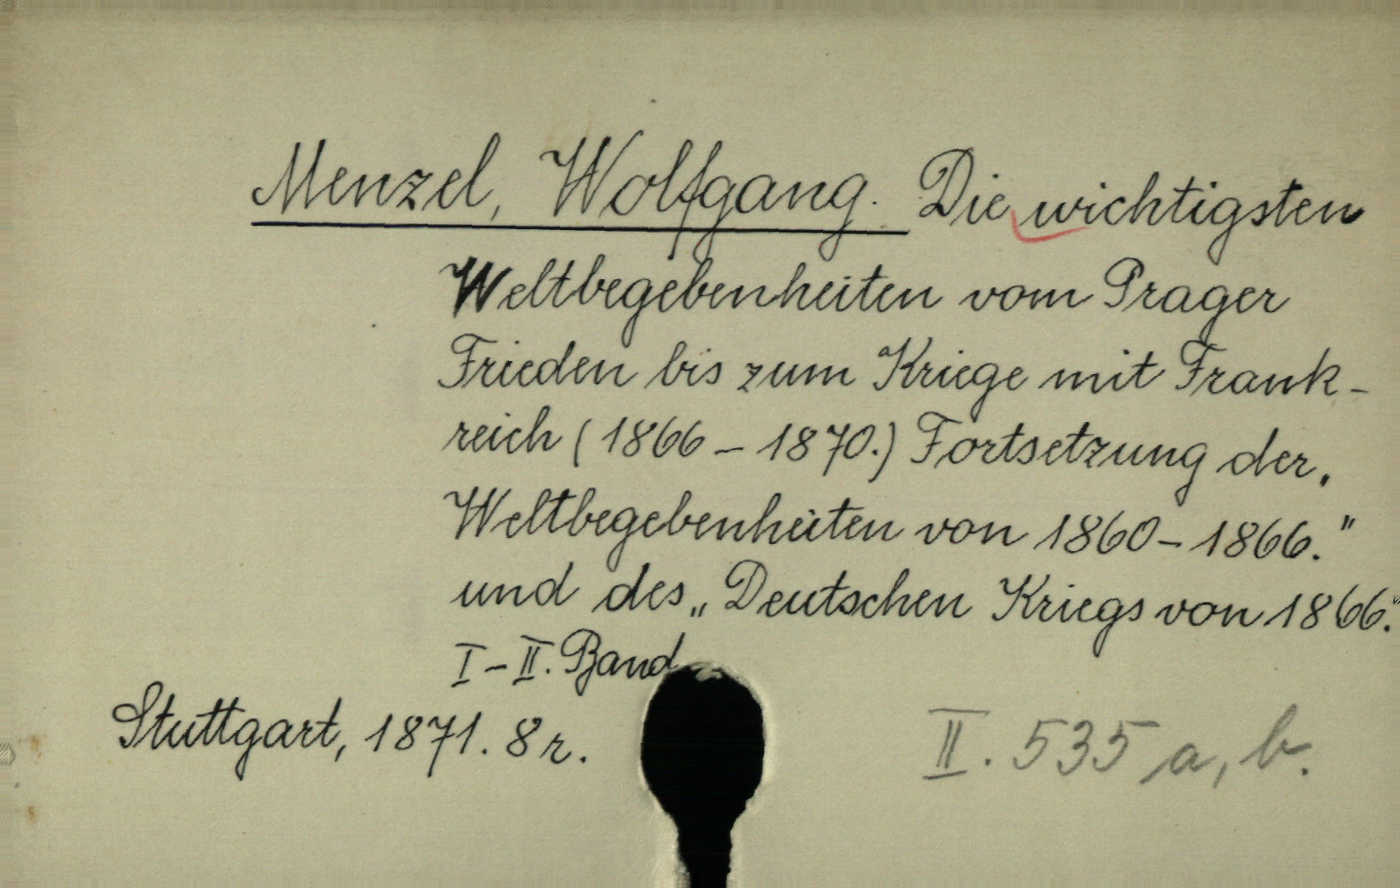 Menzel, Wolfgang. Die wichtigsten
Weltbegebenheiten vom Prager
Frieden bis zum Kriege mit Frank-
reich (1866 - 1870.) Fortsetzung der „
Weltbegebenheiten von 1860 - 1866."
und des „Deutschen Kriegs von 1866."
I - II. Band
Stuttgart, 1871. 8 r.
II. 535 a, b.